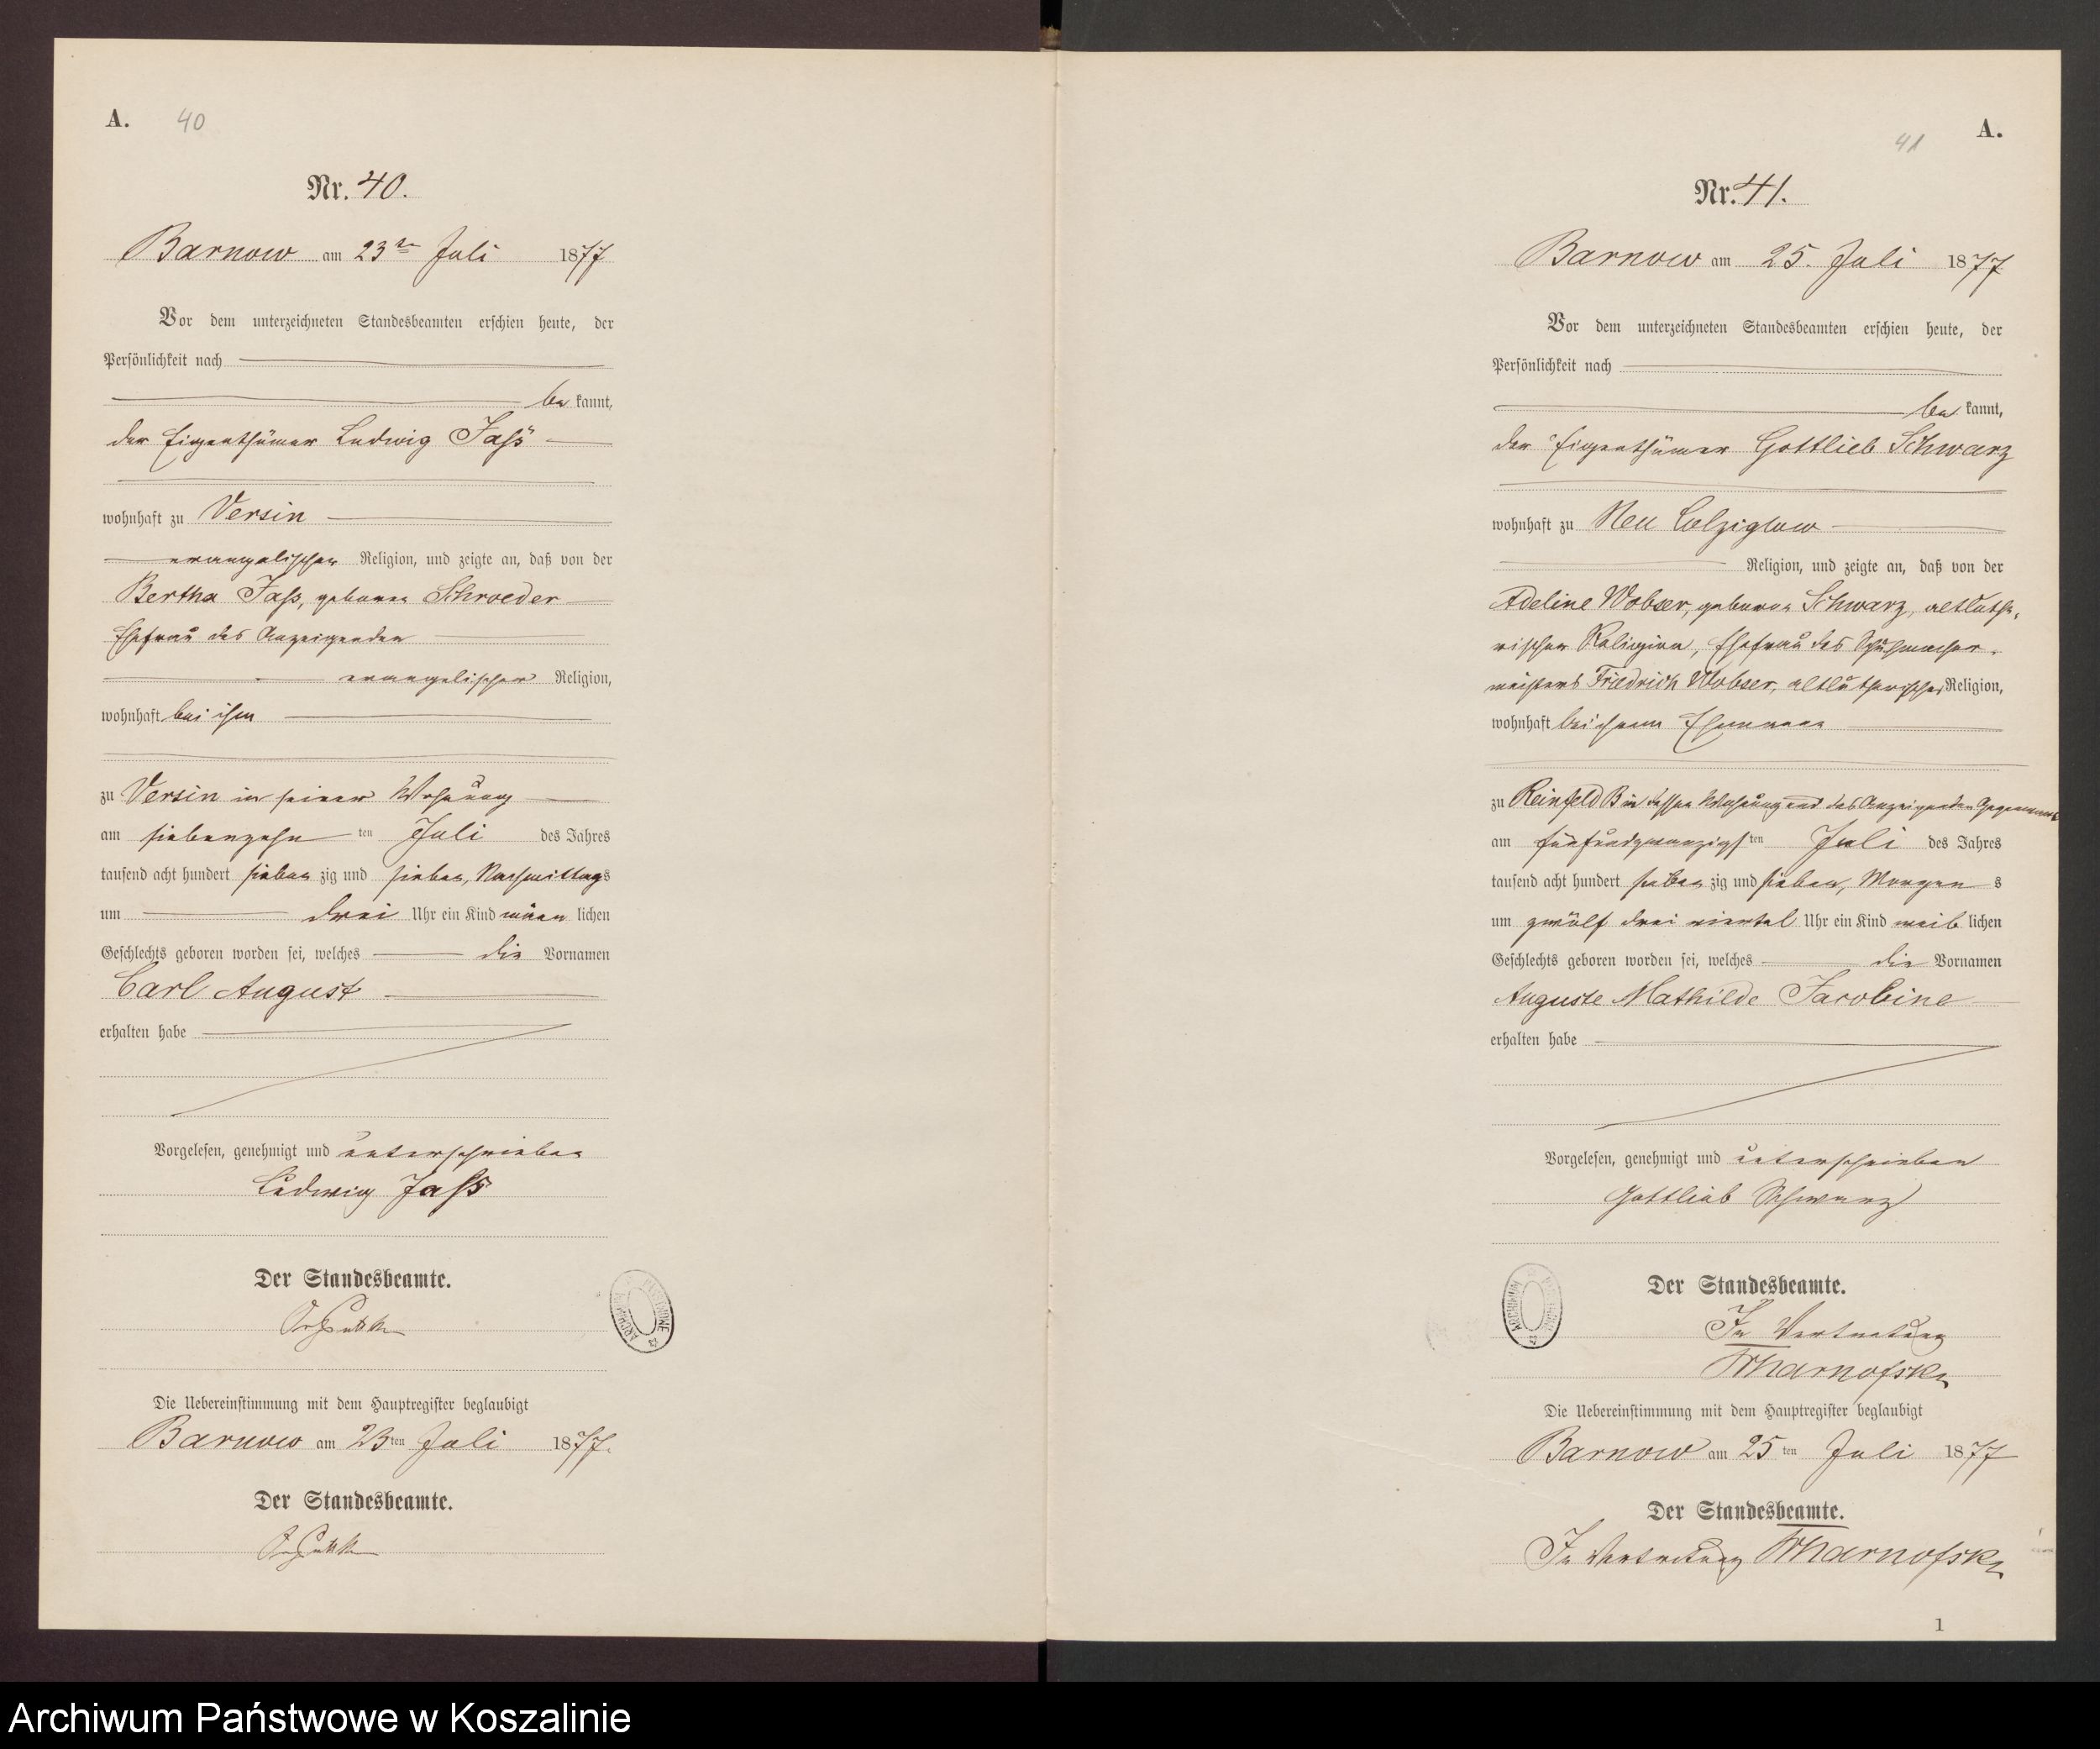 A. 40
Nr. 40.
Barnow am 23ten Juli 1877
Vor dem unterzeichneten Standesbeamten erschien heute, der
Persönlichkeit nach
be kannt,
der Eigenthümer Ludwig Jaß
wohnhaft zu Versin
evangelischer Religion, und zeigte an, daß von der
Bertha Jaß, geborene Schroeder
Ehefrau des Anzeigenden
evangelischer Religion,
wohnhaft bei ihm
zu Versin in seiner Wohnung
am siebenzehn ten Juli des Jahres
tausend acht hundert sieben zig und sieben, Nachmittags
um drei Uhr ein Kind männ lichen
Geschlechts geboren worden sei, welches die Vornamen
Carl August
erhalten habe
Vorgelesen, genehmigt und unterschrieben
Ludwig Jaß
Der Standesbeamte.
Die Uebereinstimmung mit dem Hauptregister beglaubigt
Barnow am 23ten Juli 1877.
Der Standesbeamte.
ARCHIWUM PAŃSTWOWE
41 A.
Nr. 41.
Barnow am 25. Juli 1877
Vor dem unterzeichneten Standesbeamten erschien heute, der
Persönlichkeit nach
be kannt,
der Eigenthümer Gottlieb Schwarz
wohnhaft zu Neu Colziglow
Religion, und zeigte an, daß von der
Adeline Wobser, geborene Schwarz, altluthe-
rischer Religion, Ehefrau des Schuhmacher-
meisters Friedrich Wobser, altlutherischer Religion,
wohnhaft bei ihrem Ehemann
zu Reinfeld B in dessen Wohnung und des Anzeigenden Gegenwart
am fünfundzwanzigs ten Juli des Jahres
tausend acht hundert sieben zig und sieben, Morgen s
um zwölf drei viertel Uhr ein Kind weib lichen
Geschlechts geboren worden sei, welches die Vornamen
Auguste Mathilde Jacobine
erhalten habe
Vorgelesen, genehmigt und unterschrieben
Gottlieb Schwarz
ARCHIWUM PAŃSTWOWE
Der Standesbeamte.
In Vertretung
Die Uebereinstimmung mit dem Hauptregister beglaubigt
Barnow am 25ten Juli 1877
Der Standesbeamte.
In Vertretung
1
Archiwum Państwowe w Koszalinie